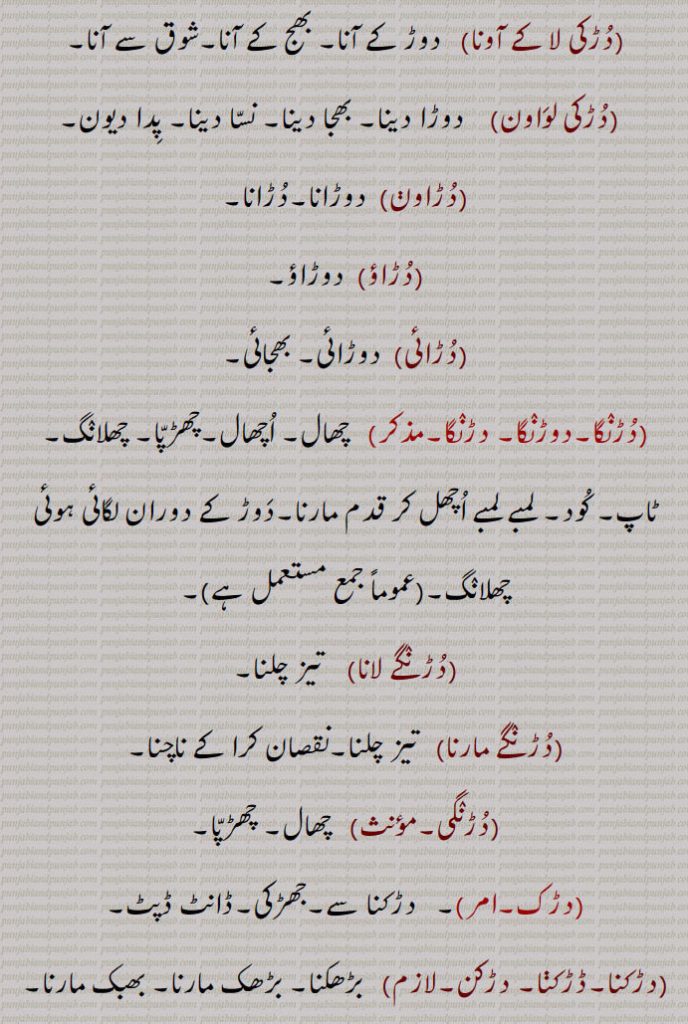 (دُڑکی لا کے آونا) دوڑ کے آنا۔ بھج کے آنا۔شوق سے آنا۔
(دُڑکی لوَاون) دوڑا دینا۔ بھجا دینا۔ نسّا دینا۔ پِدا دیون۔
(دُڑاون) دوڑانا۔دُڑانا۔
(دُڑاؤ) دوڑاؤ۔
(دُڑائی) دوڑائی۔ بھجائی۔
(دُڑن٘گا۔دوڑن٘گا۔ دڑن٘گا۔مذکر) چھال۔ اُچھال۔چھڑپّا۔ چھلانگ۔
ٹاپ۔ کُود۔ لمبے لمبے اُچھل کر قدم مارنا۔دَوڑ کے دوران لگائی ہوئی
چھلانگ۔(عموماً جمع مستعمل ہے)۔
(دُڑن٘گے لانا) تیز چلنا۔
(دُڑن٘گے مارنا) تیز چلنا۔نقصان کرا کے ناچنا۔
(دُڑن٘گی۔مؤنث) چھال۔ چھڑپّا۔
(دڑک۔امر)۔ دڑکنا سے۔جھڑکی۔ڈانٹ ڈپٹ۔
(دڑکنا۔ڈڑکنا۔ دڑکن۔لازم) بڑھکنا۔ بڑھک مارنا۔ بھبک مارنا۔